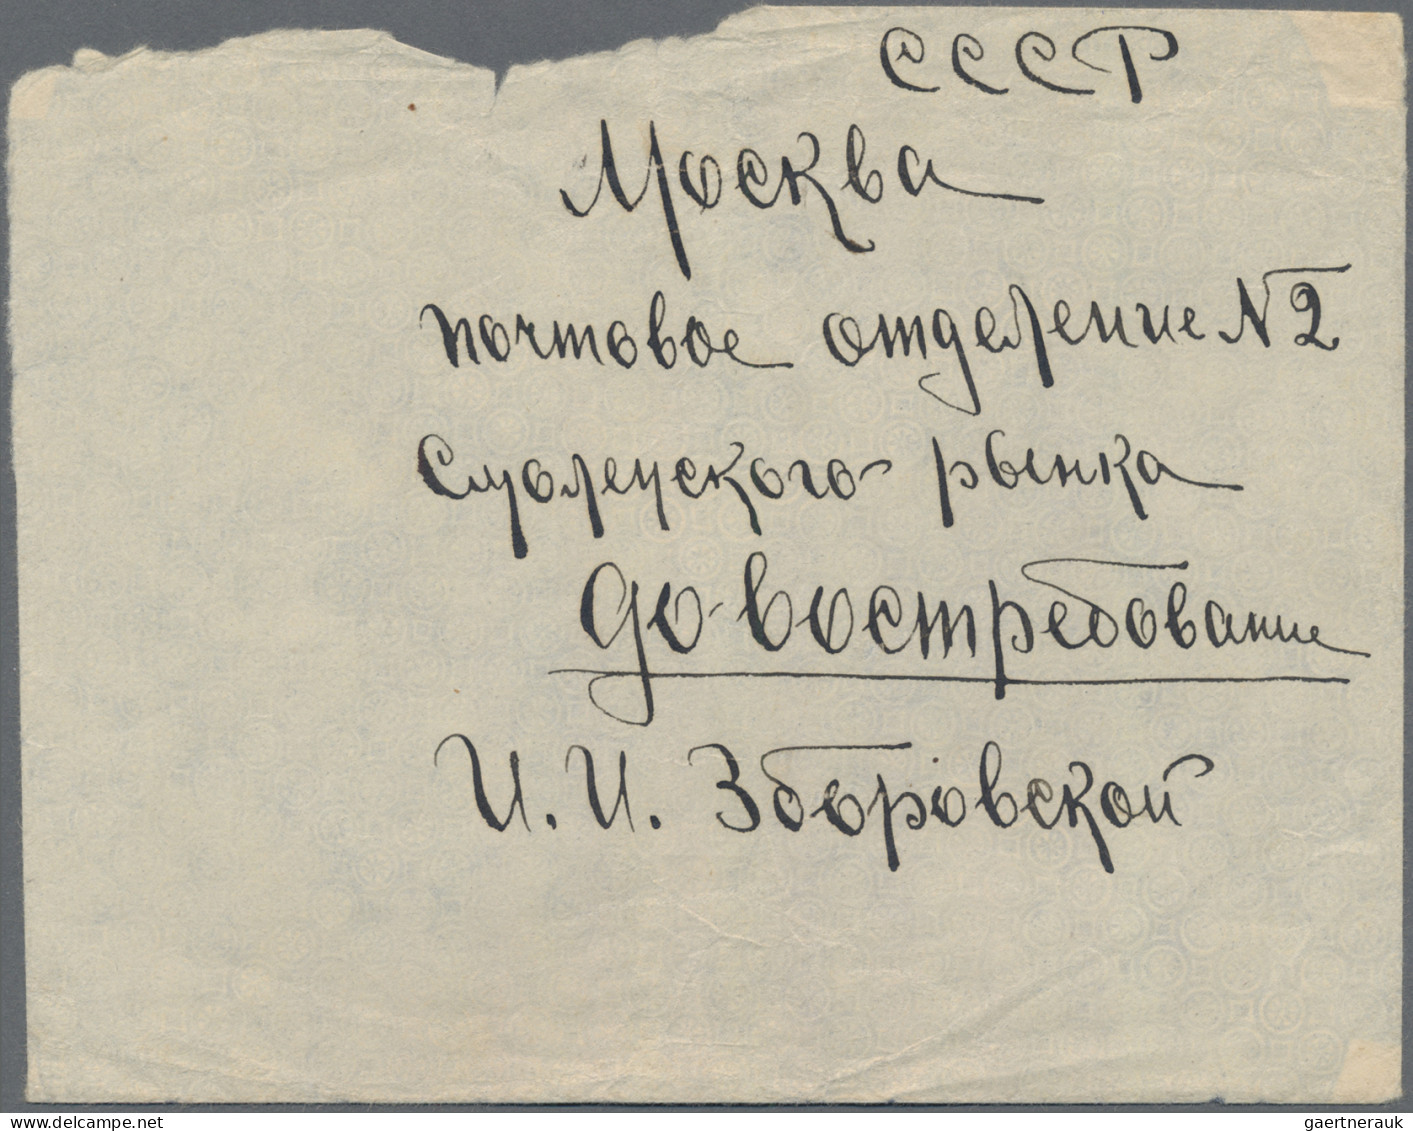 СССР
Москва
почтовое отделение № 2
Смоленского рынка
до-востребование
И. И. Зборовской
DELCAMPE.NET
gaertnerauk